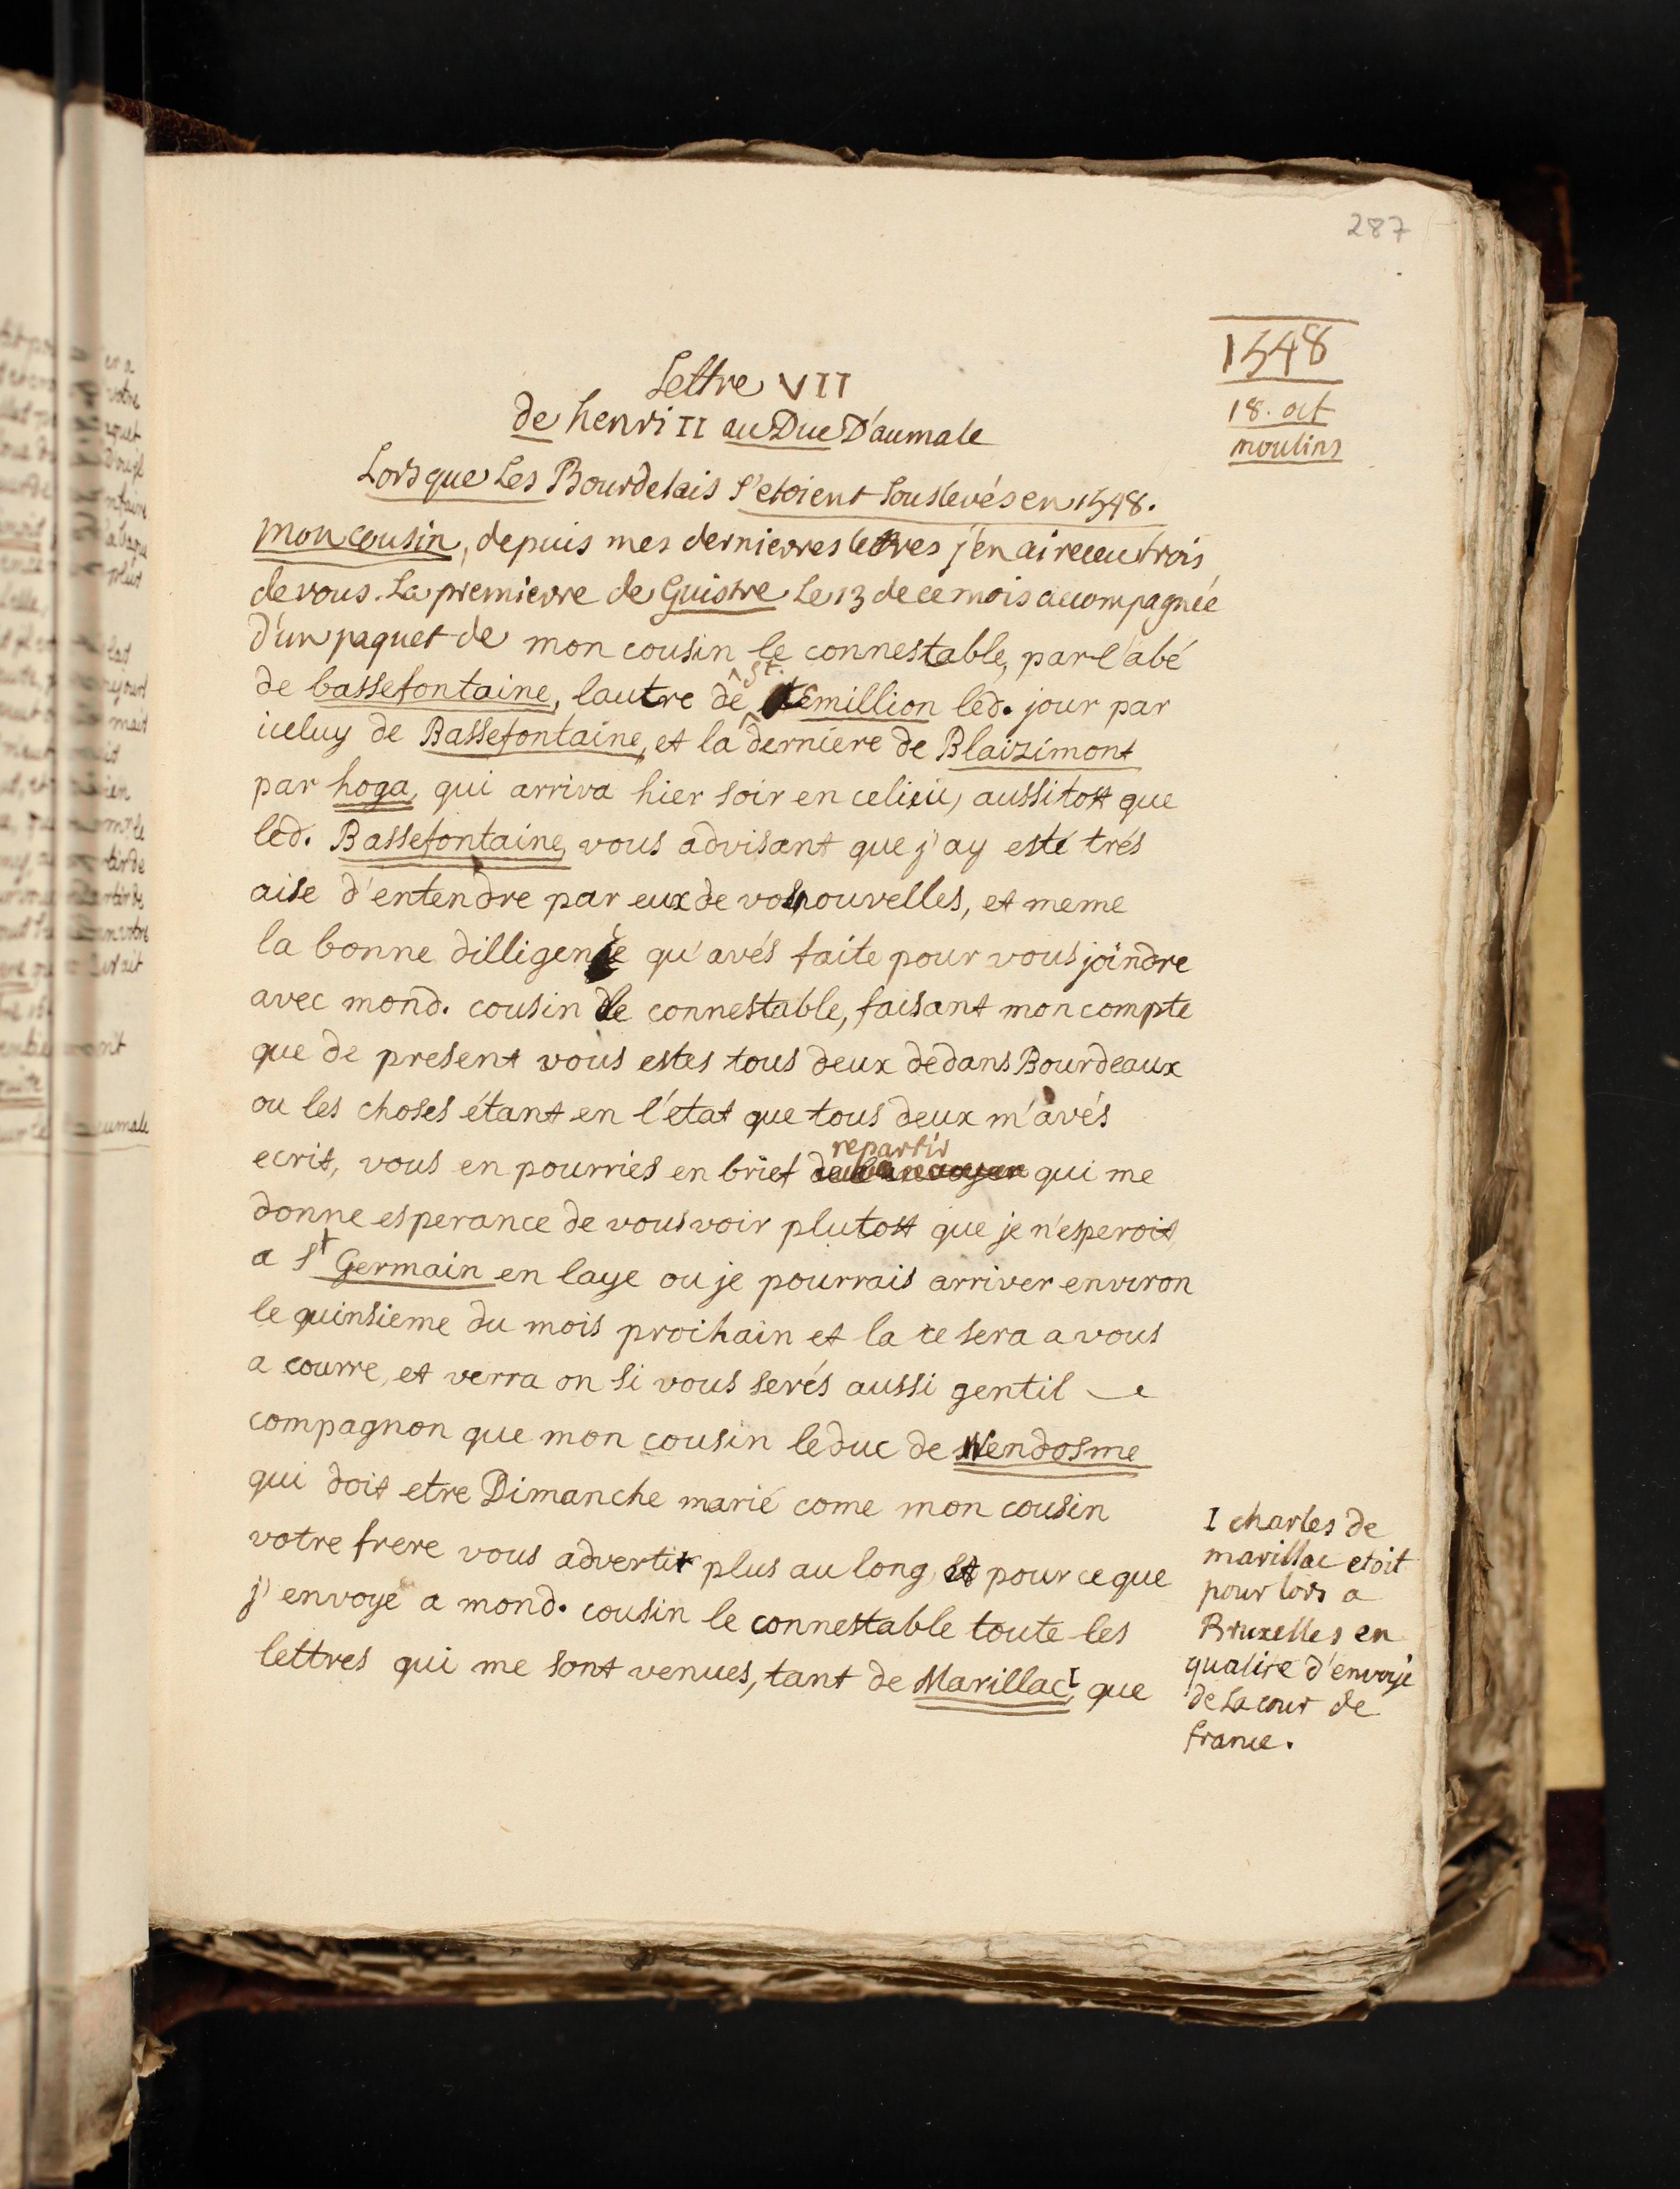 287
1548
18. oct
moulins
Lettre VII
de henri II au Duc D'aumale
Lorsque Les Bourdelais s'etoient souslevés en 1548.
mon cousin, depuis mes dernierres lettres j'en ai receu trois
de vous. La premierre de Guistre Le 13 de ce mois accompagnée
d'un paquet de mon cousin le connestable, par l'abé
de bassefontaine, lautre de St. Emillion led. jour par
iceluy de Bassefontaine, et la derniere de Blaizimont
par hoga, qui arriva hier soir en celieu, aussitost que
led. Bassefontaine, vous advisant que j'ay esté trés
aise d'entendre par eux de vos nouvelles, et meme
la bonne dilligence qu'avés faite pour vous joindre
avec mond. cousin le connestable, faisant mon compte
que de present vous estes tous deux dedans Bourdeaux
ou les choses étant en l'état que tous deux m'avés
ecrit, vous en pourriés en brief repartir qui me
donne esperance de vous voir plutost que je n'esperois
a St Germain en laye ou je pourrais arriver environ
le quinsieme du mois prochain et la ce sera a vous
a courre, et verra on si vous serés aussi gentil
compagnon que mon cousin leduc de Vendosme
qui doit etre Dimanche marié come mon cousin
votre frere vous advertit plus au long, et pour ce que
j'envoye a mond. cousin le connestable toute les
lettres qui me sont venues, tant de Marillac I, que
I charles de
marillac etoit
pour lors a
Bruxelles en
qualite d'envoyé
de La cour de
france.